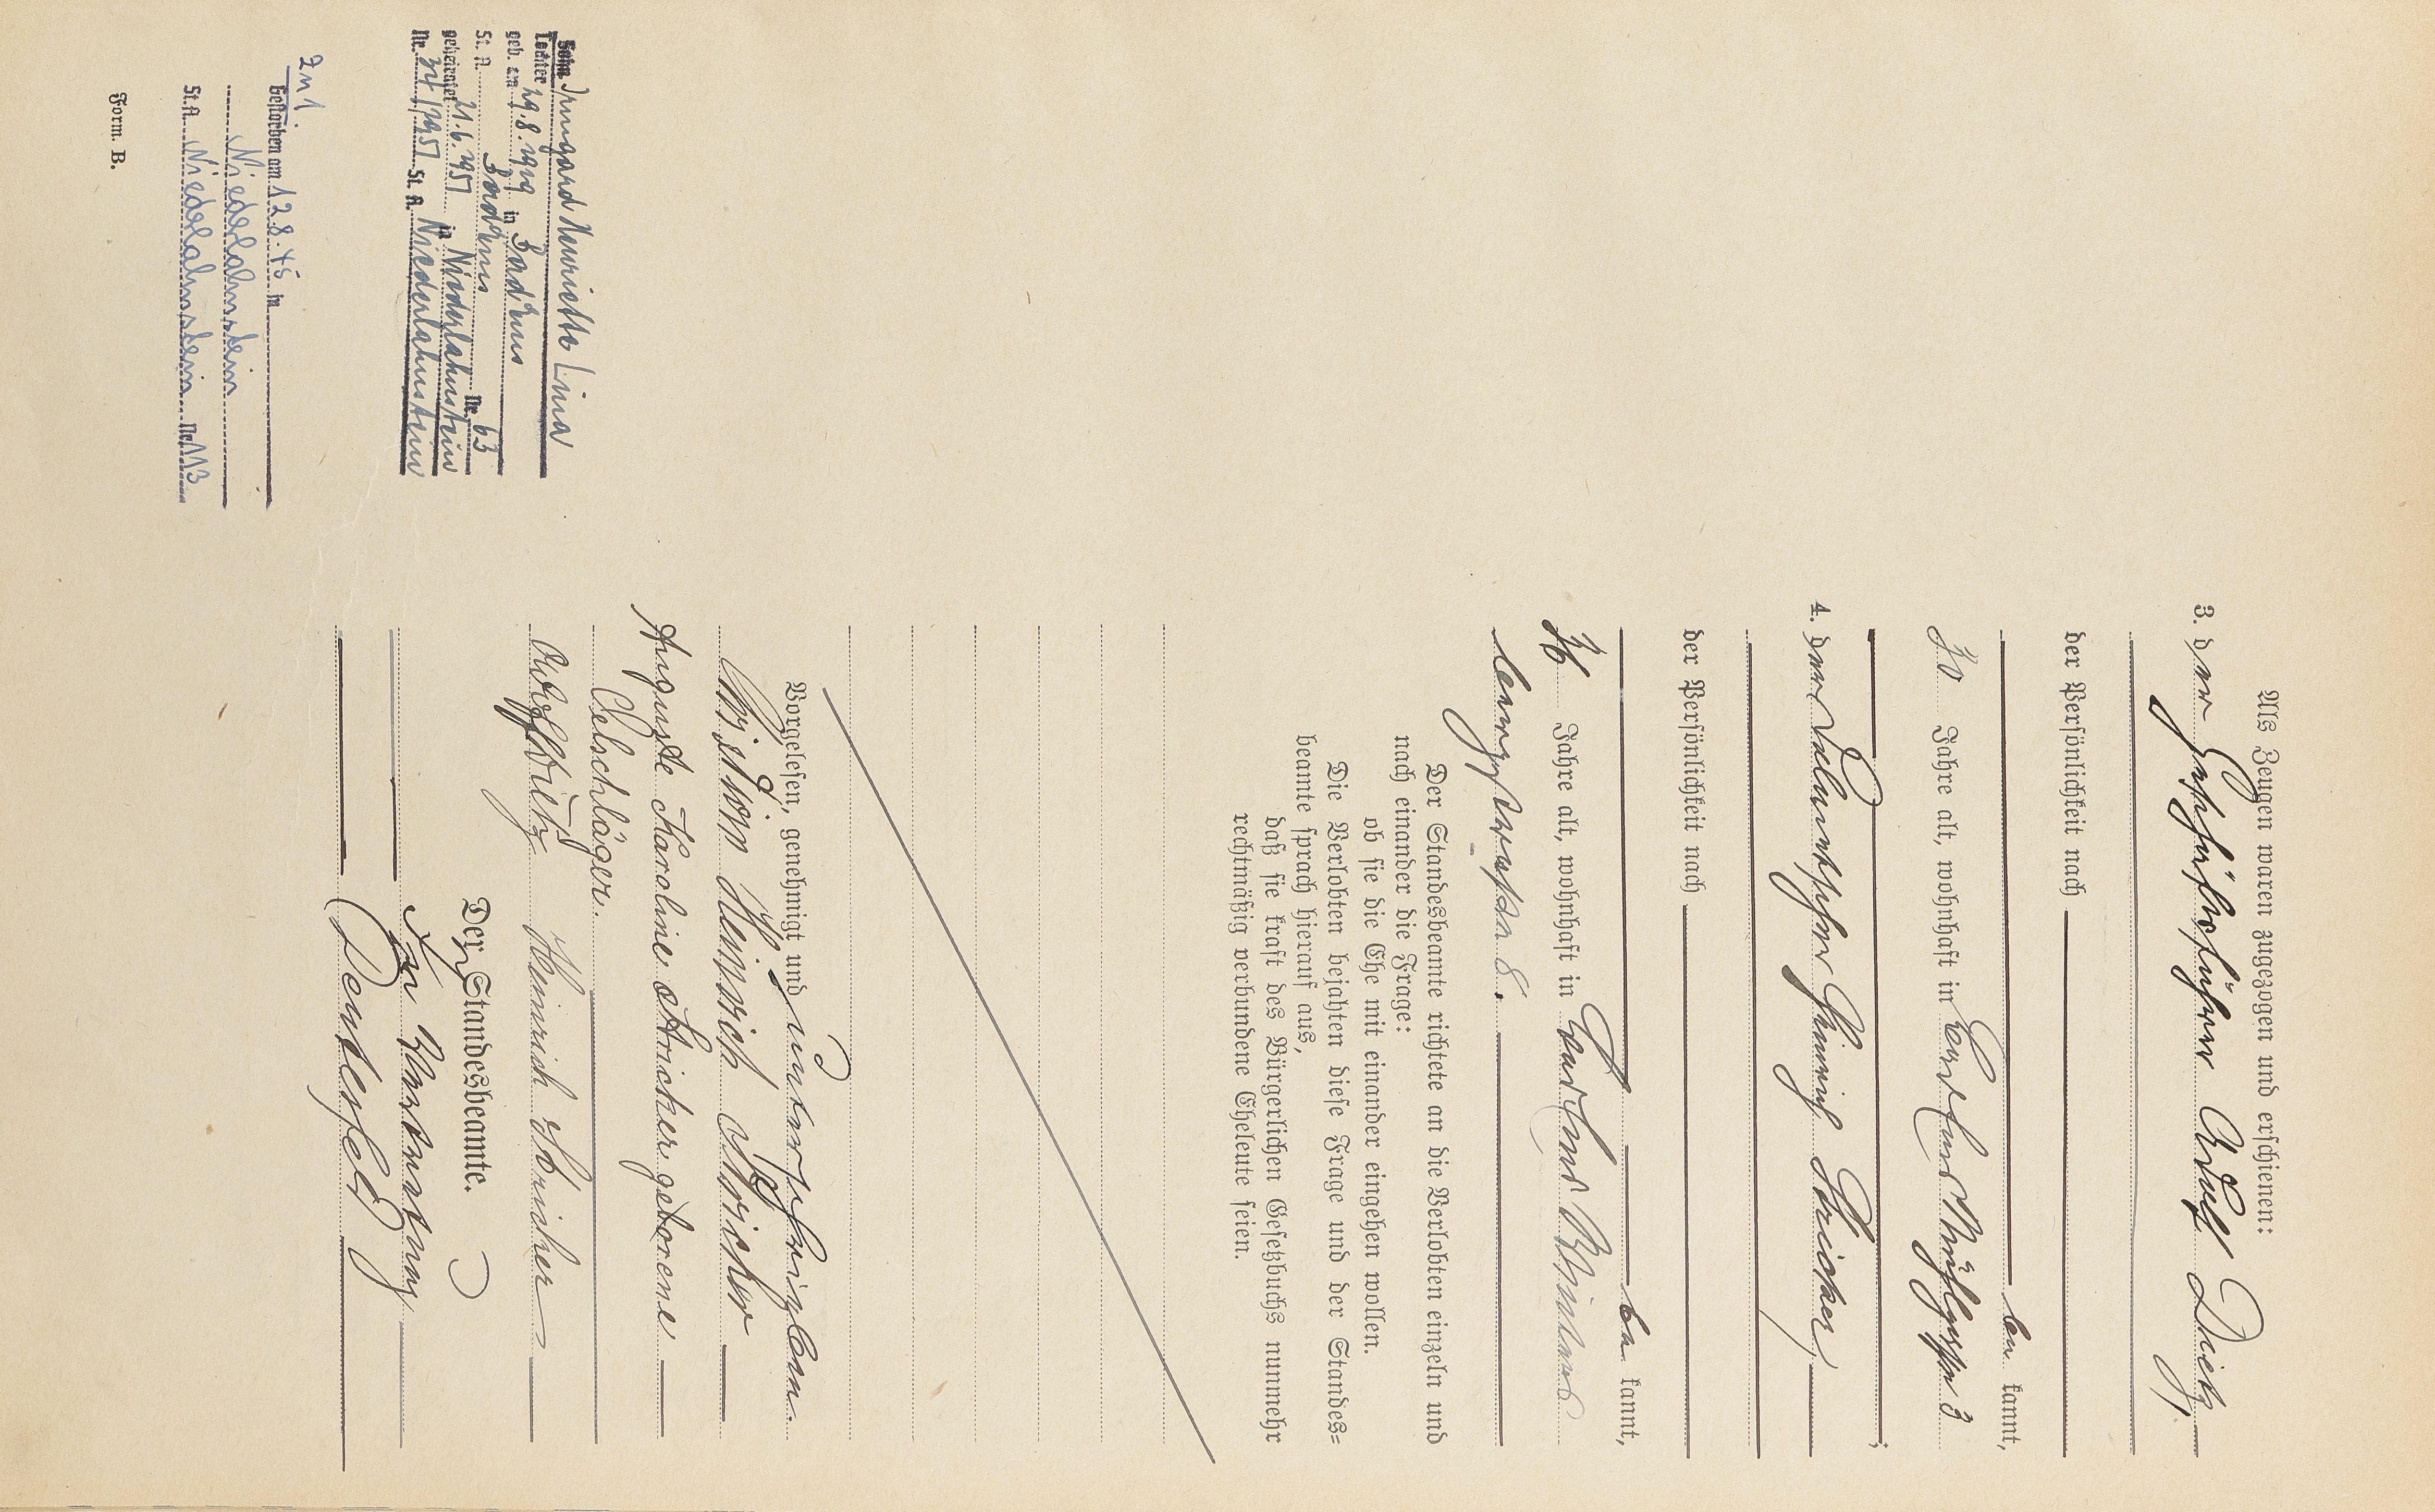 Als Zeugen waren zugezogen und erschienen:
3. der Geschäftsführer Adolf Dietz,
der Persönlichkeit nach
be kannt,
30 Jahre alt, wohnhaft in Bad Ems Mühlgasse 3
4. der Heinrich Stricker,
der Persönlichkeit nach
be kannt,
36 Jahre alt, wohnhaft in Bad Ems
8.
Der Standesbeamte richtete an die Verlobten einzeln und
nach einander die Frage:
ob sie die Ehe mit einander eingehen wollen.
Die Verlobten bejahten diese Frage und der Standes=
beamte sprach hierauf aus,
daß sie kraft des Bürgerlichen Gesetzbuchs nunmehr
rechtmäßig verbundene Eheleute seien.
Vorgelesen, genehmigt und unterschrieben.
Christian Heinrich Stricker
Auguste Karoline Stricker geborene
Oelschläger.
Adolf Dietz Heinrich Stricker
Der Standesbeamte.
In Vertretung
Deutesfeld
Sohn Irmgard Henriette Lina
Tochter
geb. am 29.8.1919 in Bad Ems
St. A. Bad Ems Nr. 63
geheiratet 21.6.1951 in Niederlahnstein
Nr. 34/1951 St. A. Niederlahnstein
Zu 1.
Gestorben am 12.8.45 in
Niederlahnstein
St.A. Niederlahnstein Nr. 113
Form. B.